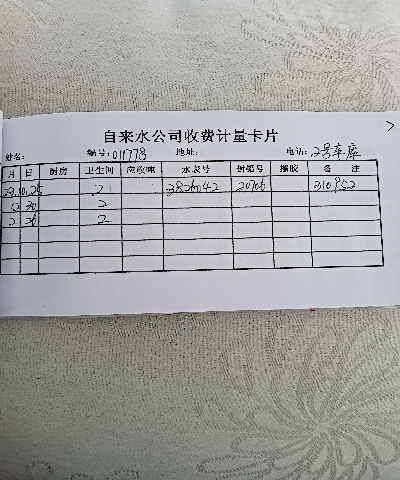 自来水公司收费计量卡片
姓名: 编号: 011778 地址: 电话: 2号车库
月 日 厨房 卫生间 应收吨 水表号 封铅号 橡胶 备 注
23.10.25 2 3826042 20706 310952
12 30 2
2 26 2